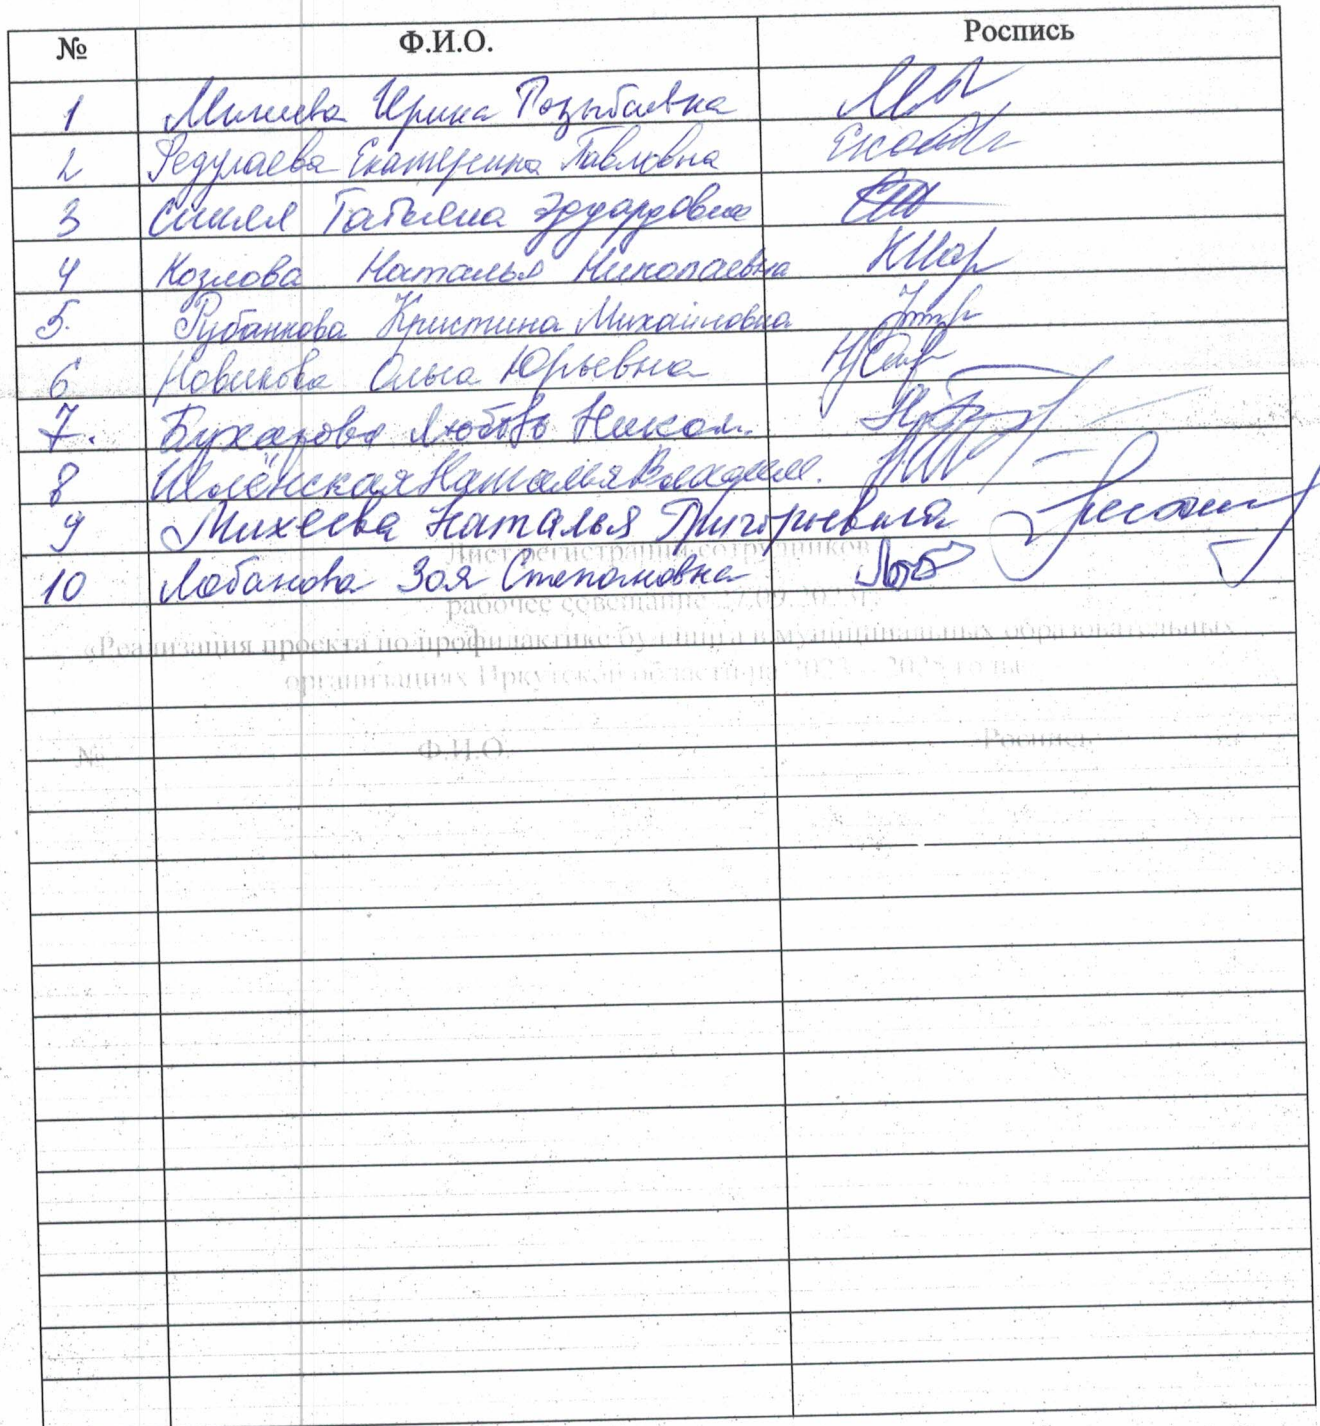 № Ф.И.О. Роспись
1 Ирина
2 Федулаева Екатерина Павловна
3 Татьяна Эдуардовна
4 Козлова Наталья Николаевна
5. Рубанкова Кристина Михайловна
6 Новикова Ольга Юрьевна
7. Бухарова Любовь Никол.
8 Шленская Наталья Владим.
9 Михеева Наталья Григорьевна
10 Лобанова Зоя Степановна
Лист регистрации сотрудников
рабочее совещание
«Реализация проекта по профилактике буллинга в муниципальных образовательных
организациях Иркутской области на
№ Ф.И.О. Роспись